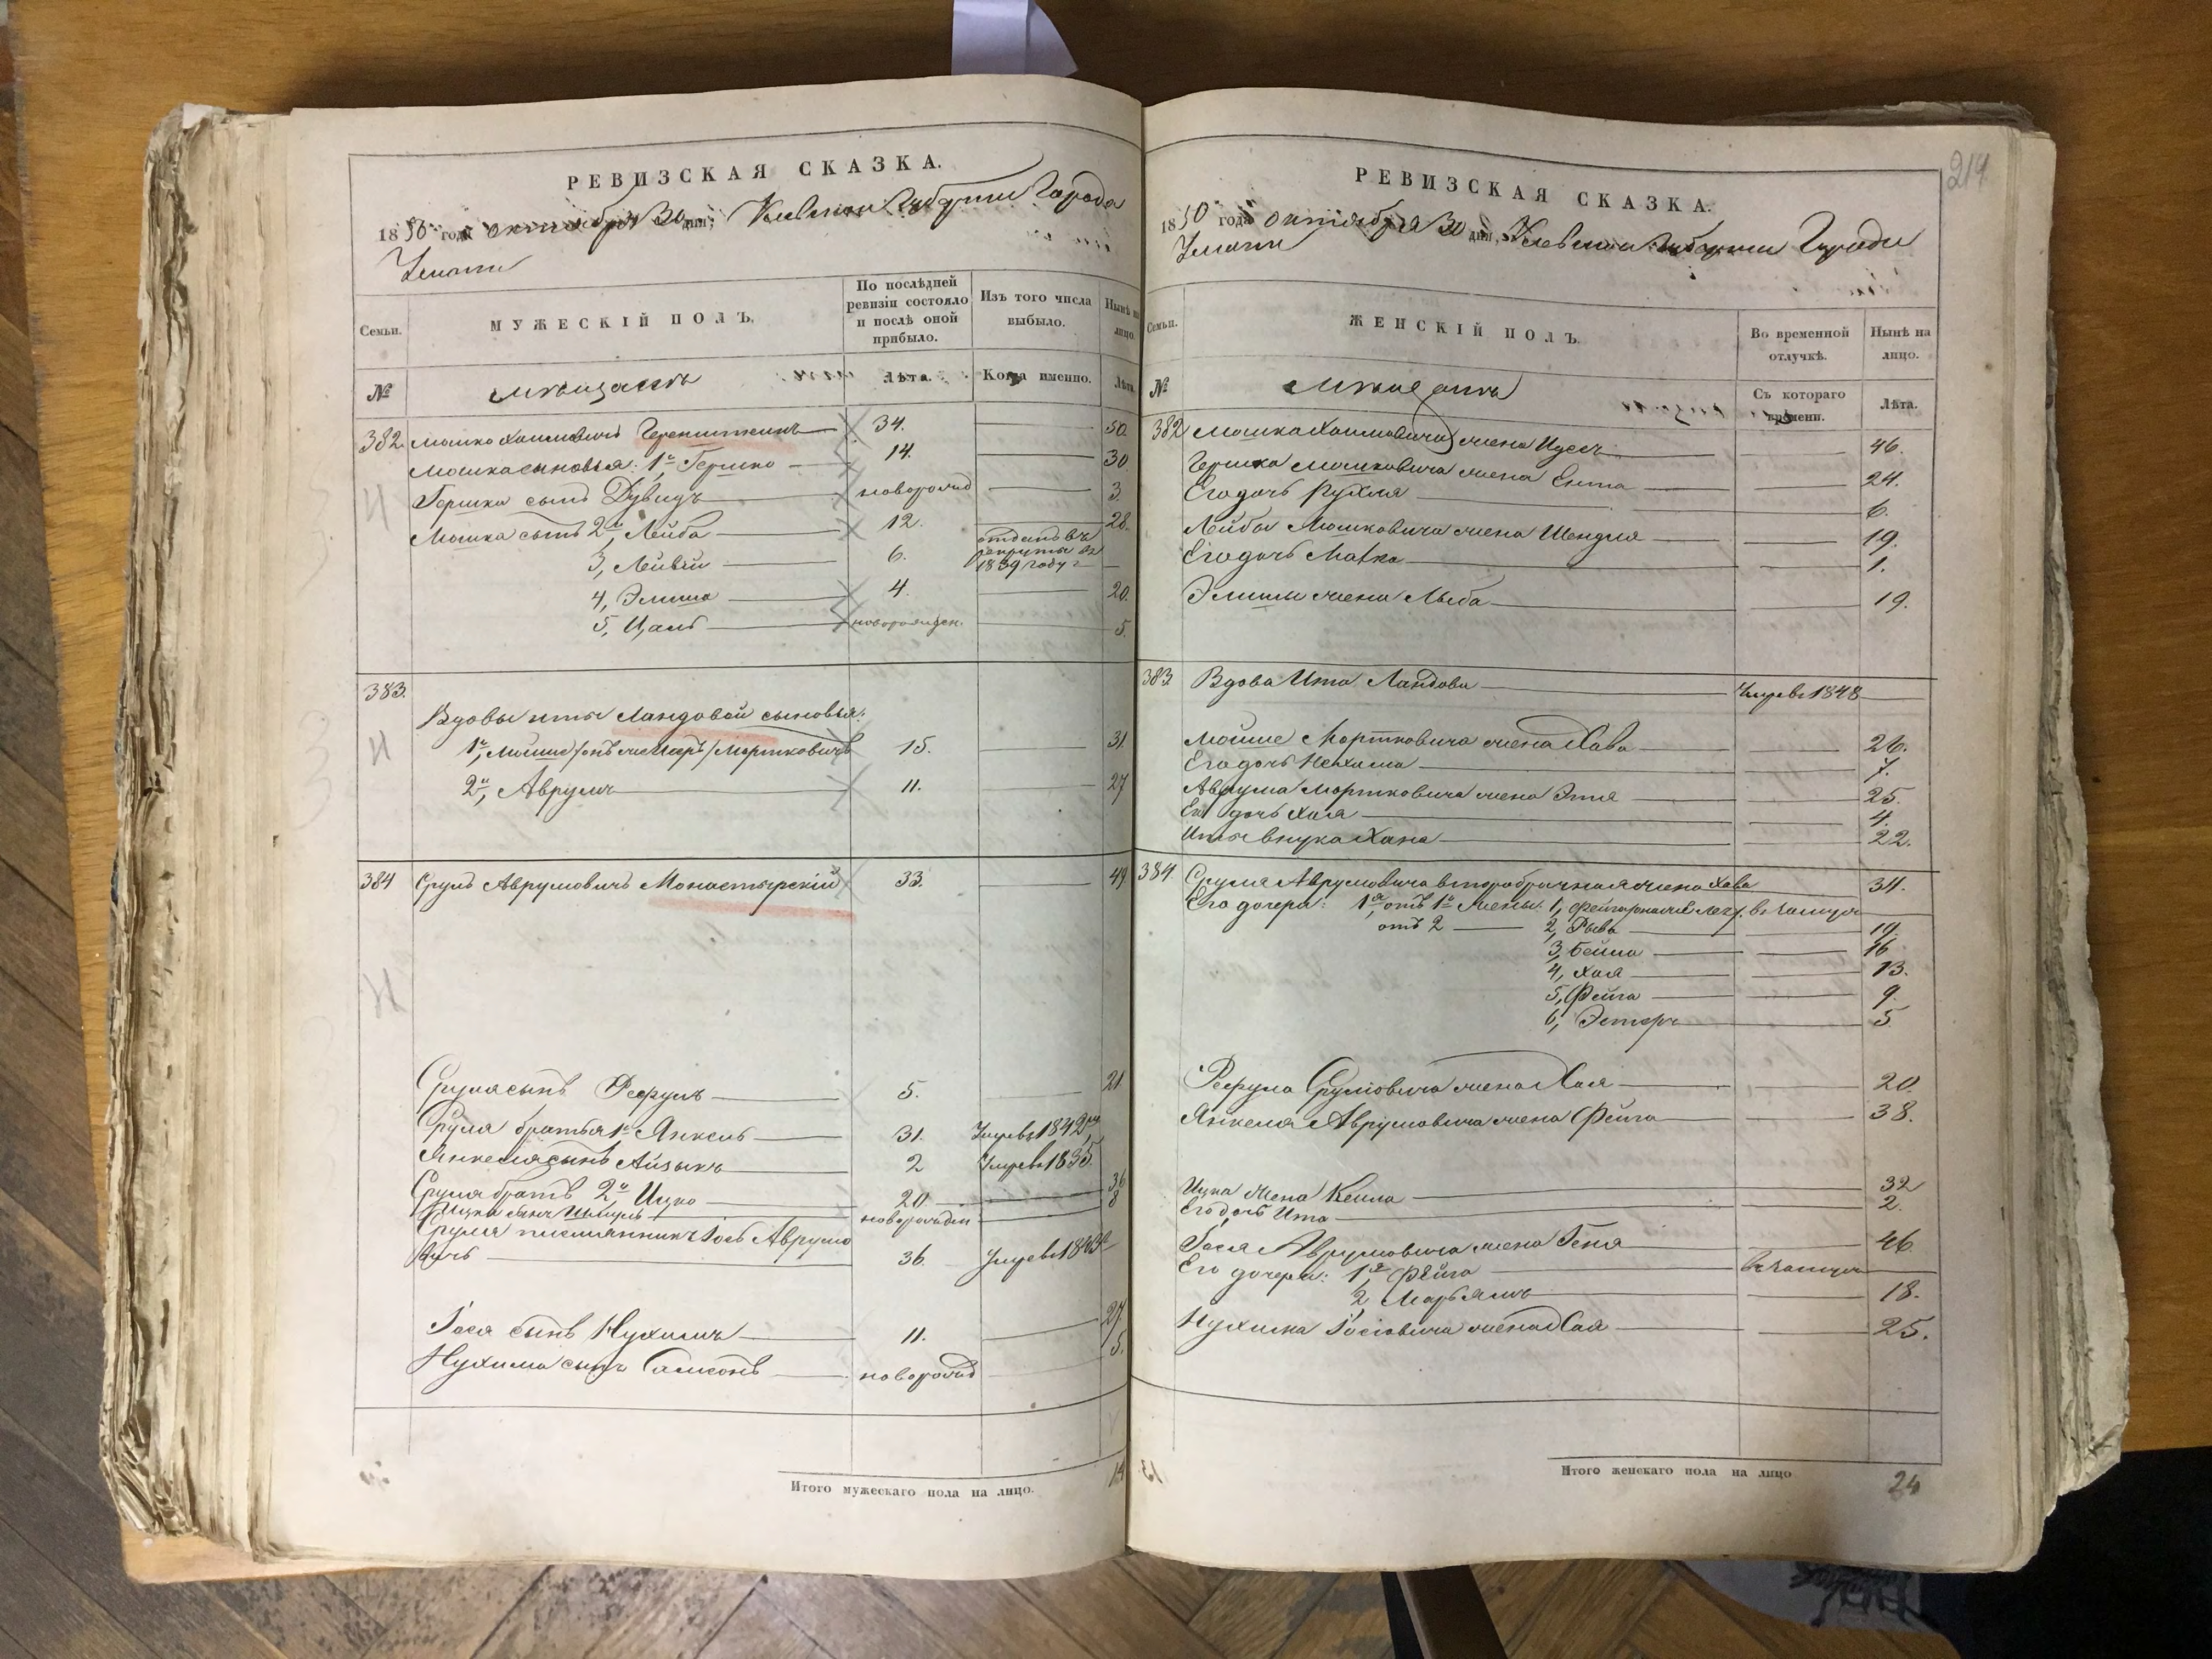 РЕВИЗСКАЯ СКАЗКА.
1850 года октября 30 дня, Киевской Губернии Города
Умани
Семьи.
МУЖЕСКІЙ ПОЛЪ.
По послѣдней ревизіи состояло и послѣ оной прибыло.
Изъ того числа выбыло.
Нынѣ на лицо.
№
мѣщанъ
Лѣта.
Когда именно.
Лѣта.
382. Мошко Хаимовичъ 34. 50.
Мошка сыновья: 1й, Гершко 14. 30
Гершка сынъ Дувидъ новорожд 3.
Мошка сынъ 2й, Лейба 12. 28.
3, Лейвій 6. отданъ въ рекруты въ 1839 году
4, Элиша 4. 20.
5, Цаль новорожден. 5.
383.
Вдовы Иты Ландовой сыновья:
1й, Мойше /онъ же / Мортковичъ 15. 31.
2й, Аврумъ 11. 27
384 Сруль Аврумовичъ Монастырскій 33. 49
Сруля сынъ 5. 21.
Сруля братья 1й Янкель 31. Умеръ 1842
Янкеля сынъ Айзыкъ 2 Умеръ 1835
Сруля братъ 2й, Ицко 20. 36
Ицка сынъ Шмуль новорожден 8
Сруля племянникъ Іось Аврумо
вичъ 36. Умеръ
Іося сынъ Нухимъ 11. 27
Нухима сынъ Самсонъ новорожд 5.
Итого мужескаго пола на лицо. 14
214
РЕВИЗСКАЯ СКАЗКА.
1850 года октября 30 дня, Киевской Губернии Города
Умани
Семьи.
ЖЕНСКІЙ ПОЛЪ.
Во временной отлучкѣ.
Нынѣ на лицо.
№
мѣщанъ
Съ котораго времени.
Лѣта.
382 Мошка Хаимовича жена Идесъ 46.
Гершка Мошковича жена Ента 24.
Его дочь Рухля 6.
Лейбы Мошковича жена Шендля 19.
Его дочь Матка 1.
Элиши жена Лыба 19.
383. Вдова Ита Ландова Умерла 1848
Мойше Мортковича жена Хава 26.
Его дочь Нехама 7.
Аврума Мортковича жена Этя 25.
Его дочь Хая 4.
Иты внука Хана 22.
384. Сруля Аврумовича второбрачная жена Хава 34.
Его дочери: 1я, отъ 1й жены: 1, Фейга въ замуж
отъ 2 2, Рыва 19.
3, Бейла 16
4, Хая 13.
5, Фейга 9.
6, Эстеръ 5.
Срулёвича жена Хая 20
Янкеля Аврумовича жена Фейга 38.
Ицка жена Кейла 32
Его дочь Ита 2.
Іося Аврумовича жена Геня 46
Его дочери: 1я, Фейга въ замуж
2, Марьямъ 18.
Нухима Іосіовича жена Хая 25.
Итого женскаго пола на лицо 24